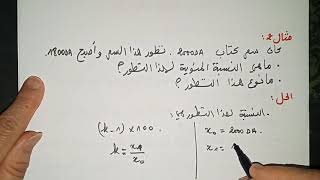 مثال 2:
كان سعر كتاب 2000DA. تطور هذا السعر وأصبح 1800DA.
- ماهي النسبة المئوية لهذا التطور؟
- مانوع هذا التطور؟
الحل:
. النسبة لهذا التطور هي:
(k-1) x100
k= x1/x0
x0 = 2000 DA.
x1 =